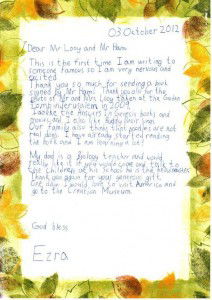 03 October 2012
Dear Mr Looy and Mr Ham.
This is the first time I am writing to
someone famous so I am very nervous and
excited.
Thank you so much for sending a book
signed by Mr Ham. Thank you also for the
photo of Mr and Mrs Looy taken at the Garden
Tomb in Jerusalem in 2009.
I like the Answers In Genesis books and
movies and I also like Buddy Davis' songs.
Our family also thinks that goodies are not
real days. I have already started reading
the book and I am enjoying it.
My dad is a Biology teacher and would
really like it if you would come and talk to
the children at his school. He is the headmaster.
Thank you again for your generous gift.
One day I would love to visit America and
go to the Creation Museum.
God bless
Ezra